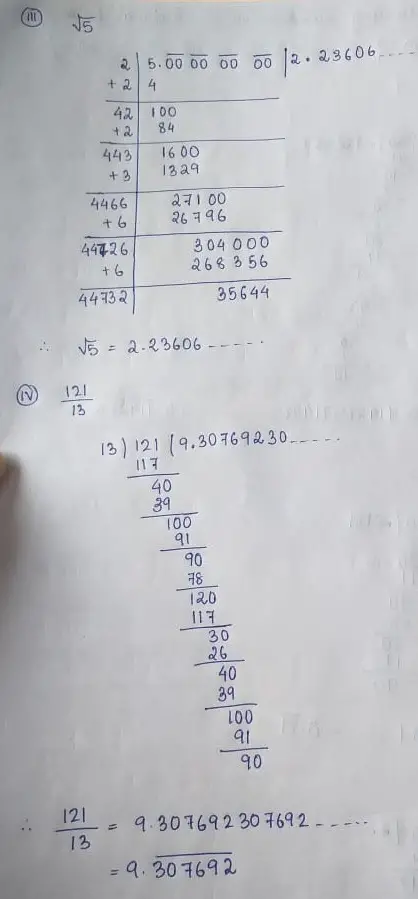 (iii) √5
2 | 5.00 00 00 00 | 2.23606....
+2 | 4
42 | 100
+2 | 84
443 | 1600
+3 | 1329
4466 | 27100
+6 | 26796
44726 | 304000
+6 | 268356
44732 | 35644
∴ √5 = 2.23606------
(iv) 121/13
13) 121 (9.30769230-----
117
40
39
100
91
90
78
120
117
30
26
40
39
100
91
90
∴ 121/13 = 9.307692307692-----
= 9.3̅0̅7̅6̅9̅2̅